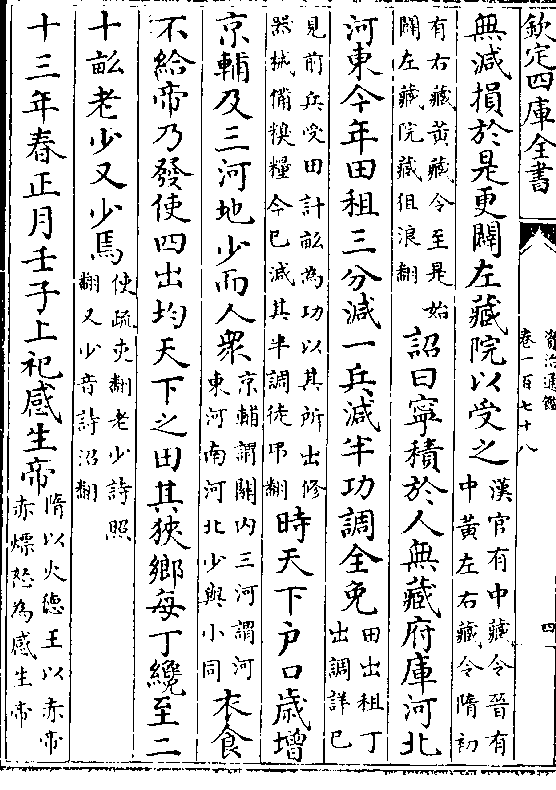 欽定四庫全書
資治通鑑
卷一百七十八
四
無減損於是更闢左藏院以受之漢官有中藏令晉有中黃左右藏令隋初
有右藏黃藏令至是始闢左藏院藏徂浪翻詔曰寧積於人無藏府庫河北
河東今年田租三分減一兵減半功調全免田出租丁出調詳已
見前兵受田計畝為功以其所出修器械備糗糧今已減其半調徒弔翻時天下户口歲增
京輔及三河地少而人衆京輔謂關内三河謂河東河南河北少與小同衣食
不給帝乃發使四出均天下之田其狹鄉每丁纔至二
十畝老少又少焉使疏吏翻老少詩照翻又少音詩沼翻
十三年春正月壬子上祀感生帝隋以火德王以赤帝赤熛怒為感生帝